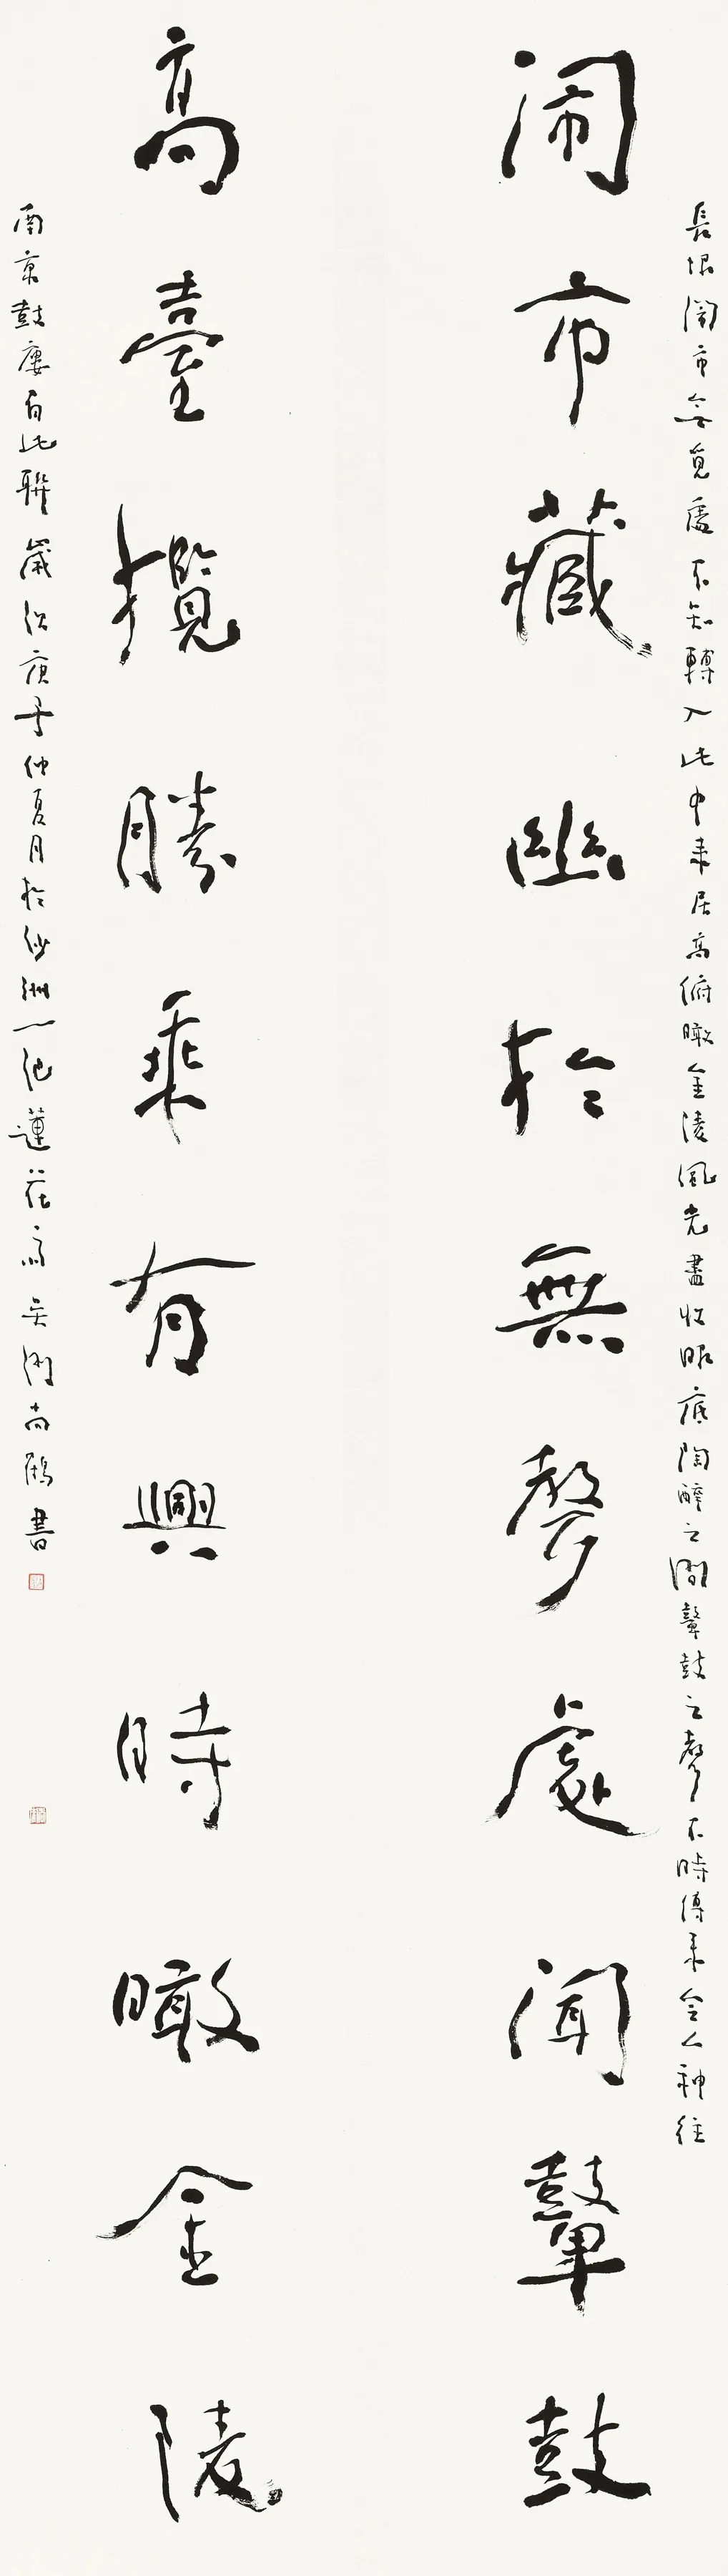 長恨闹市無覓處不知轉入此中來居高俯瞰金陵風光盡收眼底陶醉之間鼙鼓之聲不時傳來令人神往
闹市藏幽於無聲處聞鼙鼓
高臺攬勝乘有興時瞰金陵
南京鼓廔有此聯歲次庚子仲夏月於沙洲一池蓮花齋尚鶴書